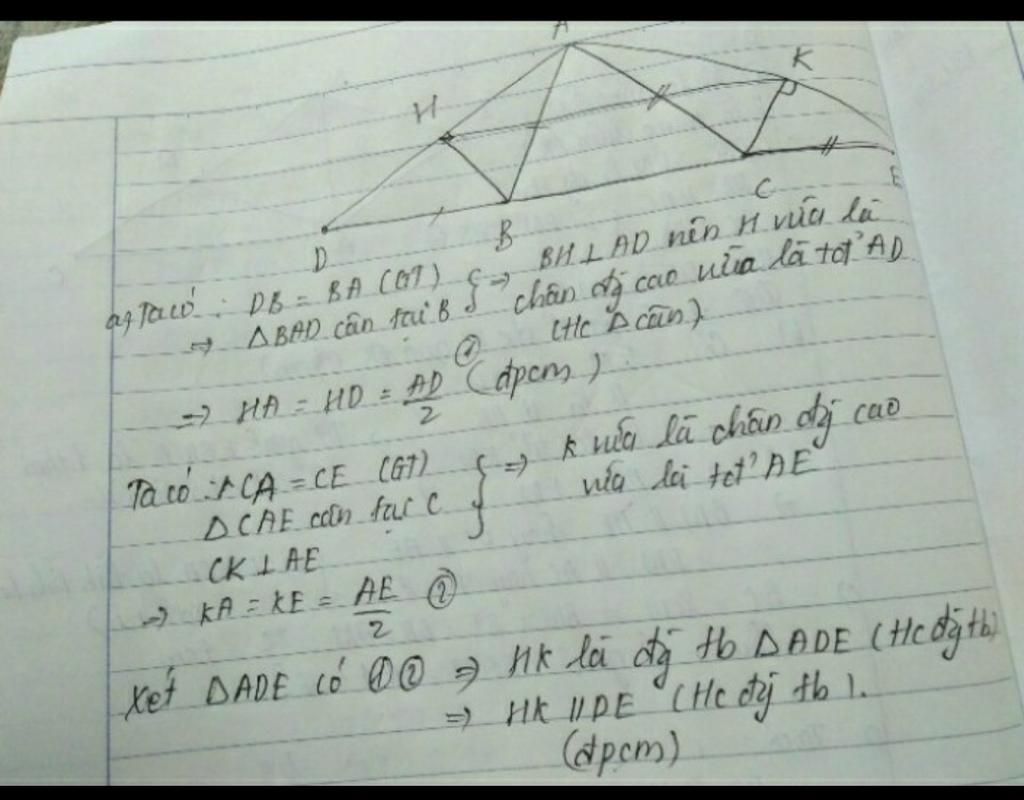 A
K
H
E
C
B
D
a, Ta có : DB = BA (GT) } ⇒ BH ⊥ AD nên H vừa là
⇒ ΔBAD cân tại B chân đg̃ cao vừa là tđ' AD
(Hc Δ cân).
⇒ HA = HD = AD/2 ① (đpcm)
Ta có : + CA = CE (GT) } ⇒ K vừa là chân đg̃ cao
ΔCAE cân tại C vừa là tđ' AE
CK ⊥ AE
⇒ KA = KE = AE/2 ②
Xét ΔADE có ① ② ⇒ HK là đg̃ tb ΔADE (Hc đg̃ tb)
⇒ HK // DE (Hc đg̃ tb).
(đpcm)